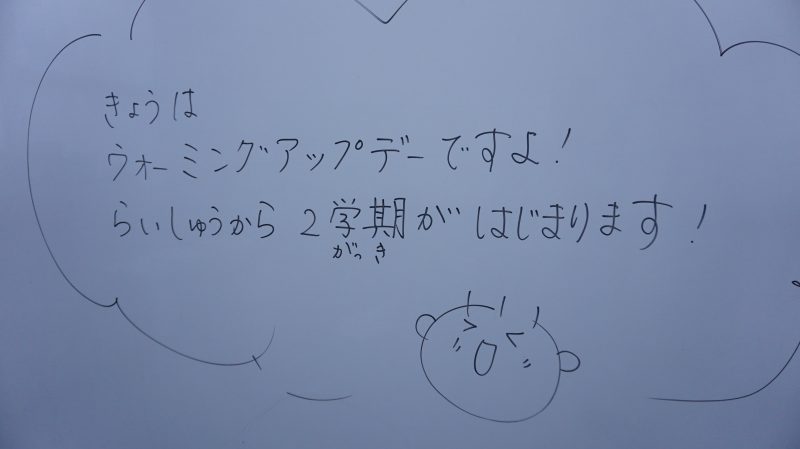 きょうは
ウォーミングアップデーですよ!
らいしゅうから2学期がはじまります!
がっき